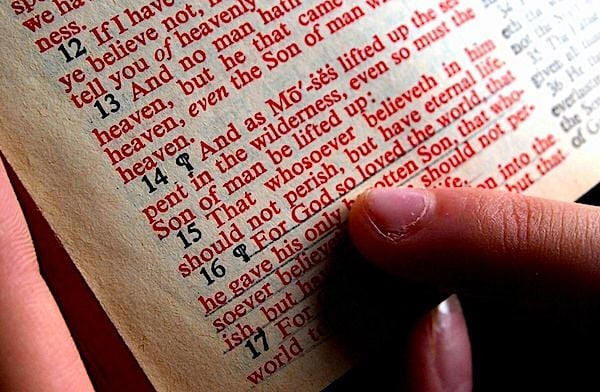 we ha
ness.
12 If I have
ye believe not,
tell you of heavenly
13 And no man hath
heaven, but he that came
heaven, even the Son of man
heaven.
14 ¶ And as Mō´-sĕs lifted up the ser
pent in the wilderness, even so must the
Son of man be lifted up:
15 That whosoever believeth in him
should not perish, but have eternal life.
16 ¶ For God so loved the world, that
he gave his only gotten Son, that who-
soever believe should not per-
ish, but ha life:
17 For on into the
world to but that
eth the
not the
35 The
given all
36 He th
everlastin
the Son
of Go